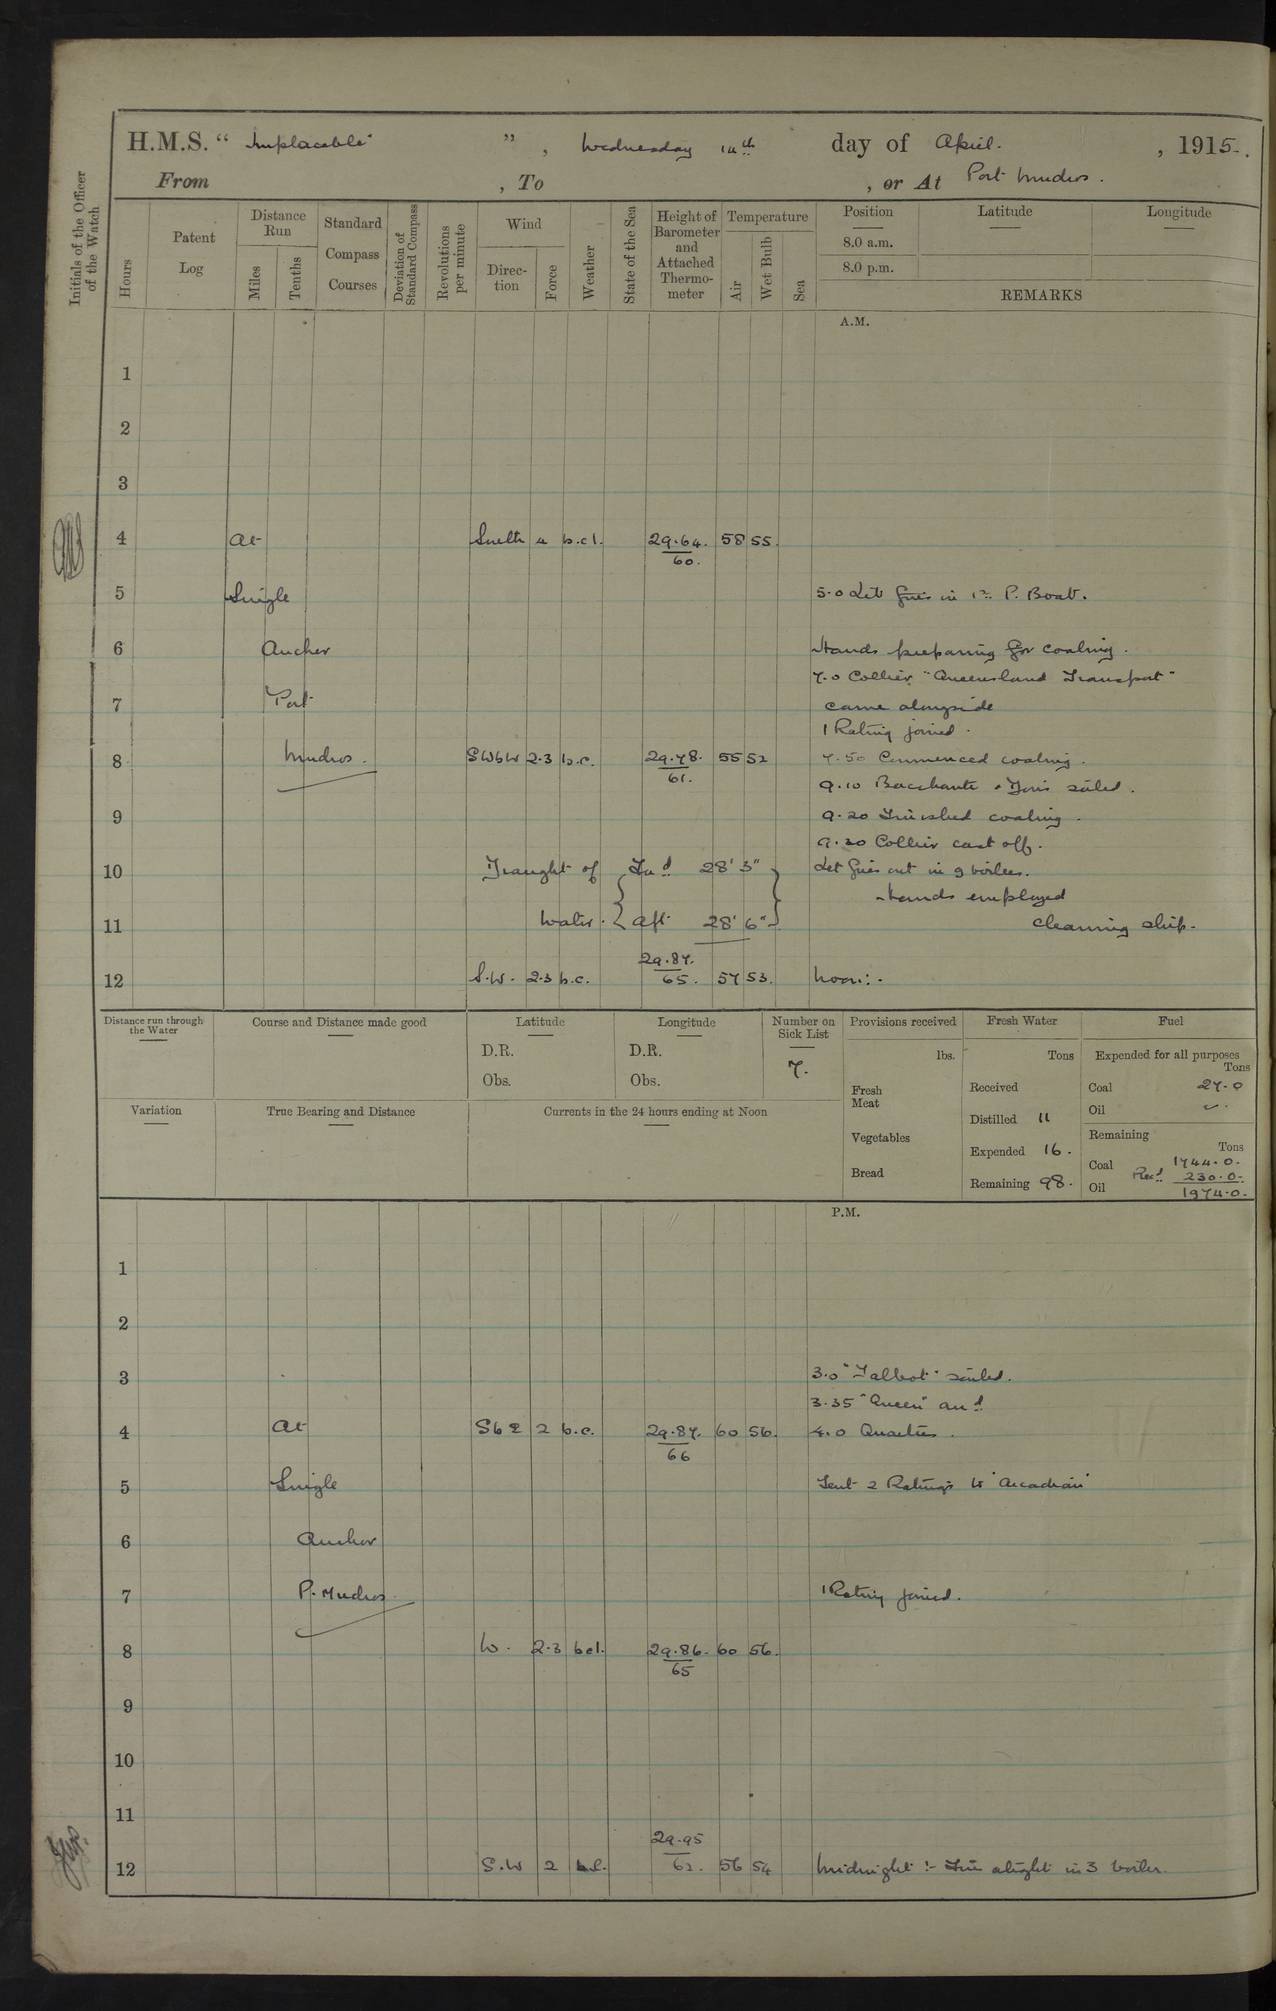 H.M.S. “ Implacable ” , Wednesday 14th day of April. , 1915.
From , To , or At Port Mudros.
Initials of the Officer of the Watch
Hours
Patent Log
Distance Run
Miles
Tenths
Standard Compass Courses
Deviation of Standard Compass
Revolutions per minute
Wind
Direction
Force
Weather
State of the Sea
Height of Barometer and Attached Thermometer
Temperature
Air
Wet Bulb
Sea
Position
8.0 a.m.
8.0 p.m.
Latitude
Longitude
REMARKS
A.M.
1
2
3
4 At South 4 b.c.l. 29.64. 58 55.
60.
5 Single 5.0 Lit fires in 1st P. Boat.
6 Anchor Hands preparing for coaling.
7.0 Collier "Queensland Transport"
7 Port came alongside
1 Rating joined.
8 Mudros. SWbW 2.3 b.c. 29.78. 55 52 7.50 Commenced coaling.
61.
9.10 Bacchante sailed.
9 9.20 Finished coaling.
9.30 Collier cast off.
10 Draught of Fwd 28' 3" Let fires out in 9 boilers.
Hands employed
11 Water. Aft 28' 6" cleaning ship.
29.87.
12 S.W. 2.3 b.c. 65. 57 53. Noon:-
Distance run through the Water
Course and Distance made good
Latitude
D.R.
Obs.
Longitude
D.R.
Obs.
Number on Sick List
7.
Provisions received
lbs.
Fresh Meat
Vegetables
Bread
Fresh Water
Tons
Received
Distilled 11
Expended 16.
Remaining 98.
Fuel
Expended for all purposes
Tons
Coal 27.0
Oil
Remaining
Tons
Coal 1744.0.
Recd 230.0.
Oil 1974.0.
Variation
True Bearing and Distance
Currents in the 24 hours ending at Noon
P.M.
1
2
3 3.0 "Talbot" sailed.
3.35 "Queen" arrd
4 At SbE 2 b.c. 29.87. 60 56. 4.0 Quarters.
66
5 Single Sent 2 Ratings to "Arcadian"
6 Anchor
7 P. Mudros. 1 Rating joined.
8 W. 2.3 bcl. 29.86. 60 56.
65
9
10
11
29.95
12 S.W 2 62. 56 54 Midnight:- Fires alight in 3 boiler.